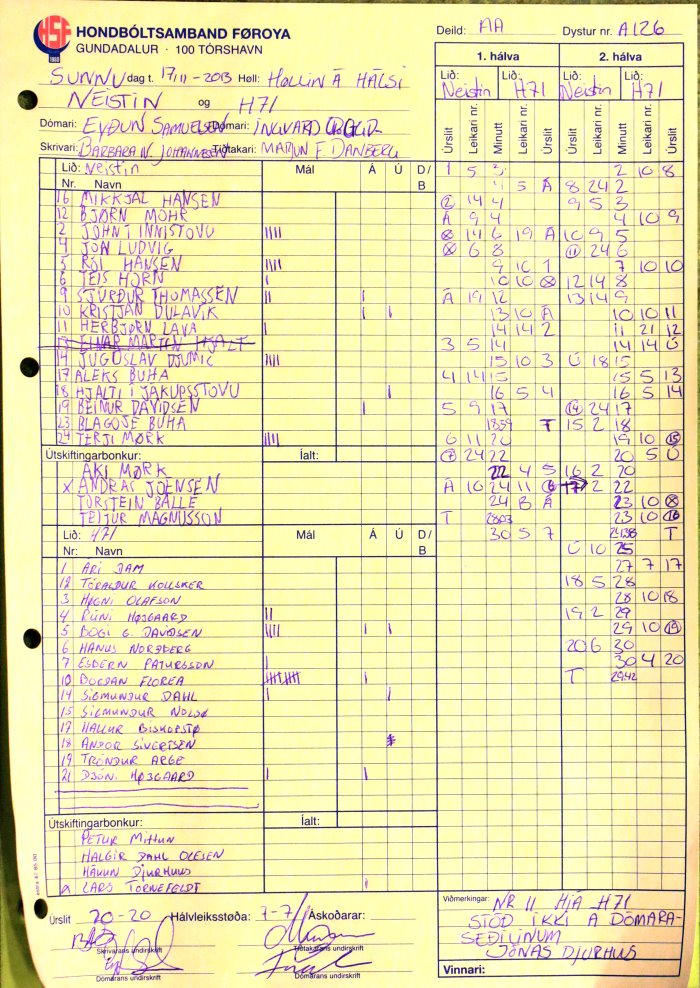 HSF
HONDBÓLTSAMBAND FØROYA
GUNDADALUR · 100 TÓRSHAVN
Deild: AA Dystur nr. A126
SUNNU dag t. 17/11-2013 Høll: HØLLIN Á HÁLSI
NEISTIN og H71
Dómari: EYÐUN SAMUELSEN Dómari: INGVARD
Skrivari: BARBARA N. JOHANNESEN Tíðtakari: MARJUN F. DANBERG
1. hálva 2. hálva
Lið: Neistin Lið: H71 Lið: Neistin Lið: H71
Úrslit Leikari nr. Minutt Leikari nr. Úrslit Úrslit Leikari nr. Minutt Leikari nr. Úrslit
Lið: Neistin Mál Á Ú D/B
Nr. Navn
16 MIKKJAL HANSEN
12 BJØRN MOHR
2 JOHN Í INNISTOVU
4 JON LUDVIG
5 RÓI HANSEN
6 TEIS HORN
9 SJÚRÐUR THOMASSEN
10 KRISTJAN DULAVIK
11 HERBJØRN LAVA
13 EINAR MARTIN HJALT
14 JUGOSLAV DJUMIC
17 ALEKS BUHA
18 HJALTI Í JAKUPSSTOVU
19 BEINUR DAVIDSEN
23 BLAGOJE BUHA
24 TERJI MØRK
Útskiftingarbonkur: Íalt:
ÁKI MØRK
x ANDRAS JOENSEN
TORSTEIN BALLE
TEITUR MAGNUSSON
Lið: H71 Mál Á Ú D/B
Nr: Navn
1 ARI DAM
12 TÓRALDUR KOLLSKER
3 HØGNI OLAFSON
4 RÚNI HØJGAARD
5 BOGI G. DAVIDSEN
6 HANUS NORÐBERG
7 ESBERN PATURSSON
10 BOGDAN FLOREA
14 SIGMUNDUR DAHL
15 SIGMUNDUR NOLSØ
17 HALLUR BISKOPSTØ
18 ANDOR SIVERTSEN
19 TRÓNDUR ARGE
21 DJÓNI HØJGAARD
Útskiftingarbonkur: Íalt:
PETUR MITTUN
HALGIR DAHL OLESEN
HÁKUN DJURHUUS
LARS TORNEFELDT
1 5 3 2 10 8
5 Á 8 24 2
2 14 4 9 5 3
Á 9 4 4 10 9
14 6 19 Á 10 9 5
6 8 11 24 6
9 10 1 7 10 10
10 10 12 14 8
Á 19 12 13 14 9
13 10 Á 10 10 11
14 14 2 11 21 12
3 5 14 14 14 Ú
15 10 3 Ú 18 15
4 14 15 15 5 13
16 5 4 16 5 14
5 9 17 14 24 17
1859 T 15 2 18
6 11 20 19 10 15
7 24 22 20 5 Ú
22 4 5 16 2 20
Á 10 24 11 6 17 2 22
24 B Á 23 10
T 2803 23 10 16
30 5 7 24:38 T
Ú 10 25
27 7 17
18 5 28
28 10 18
19 2 29
29 10 19
20 6 30
30 4 20
T 29.42
Úrslit 20-20 Hálvleiksstøða: 7-7 Áskoðarar:
Skrivarans undirskrift Tíðtakarans undirskrift
Dómarans undirskrift Dómarans undirskrift
Viðmerkingar: NR 11 HJÁ H71
STÓÐ IKKI Á DÓMARA-
SEÐLINUM
JÓNAS DJURHUS
Vinnari: